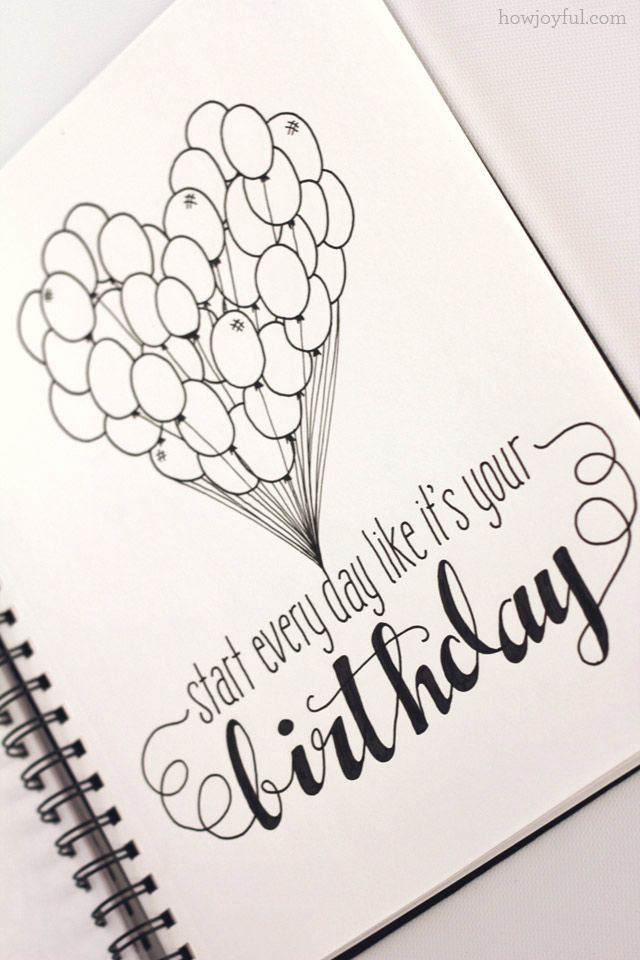 howjoyful.com
start every day like it's your
birthday